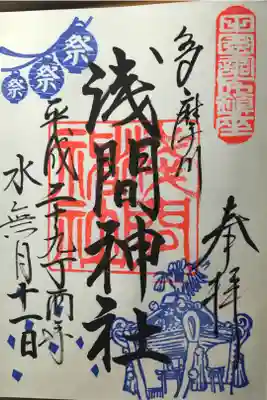 奉拝
多摩川
浅間神社
淺間
神社
平成二十九丁酉年
水無月十一日
祭
祭
祭